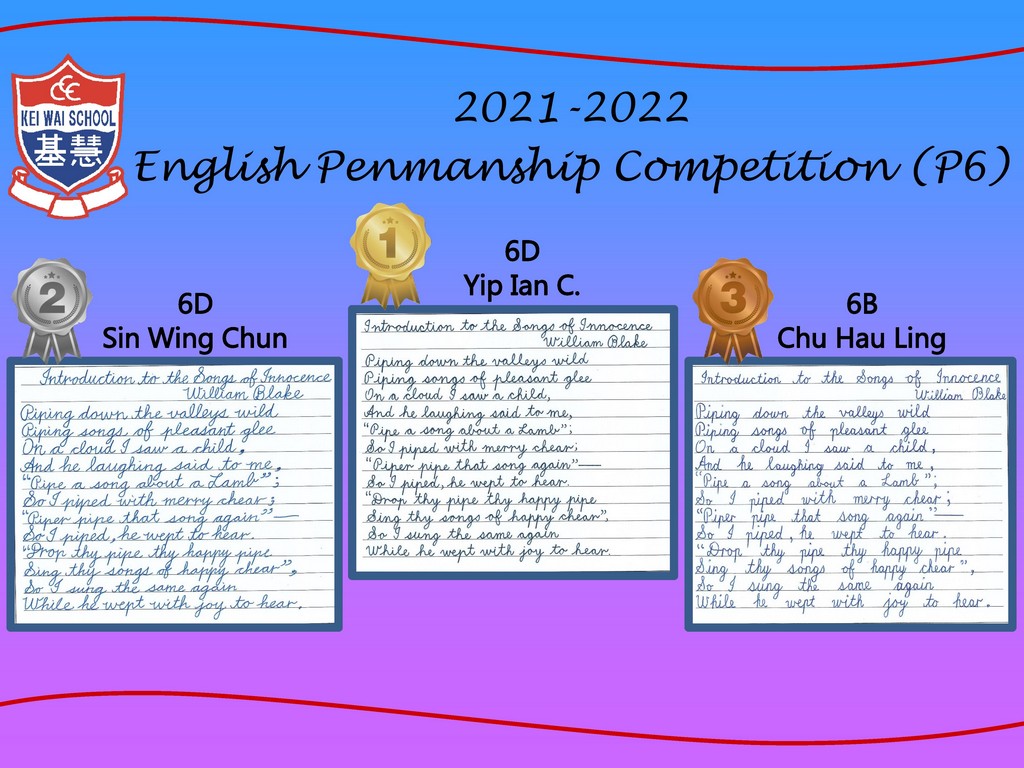 CCC
KEI WAI SCHOOL
基慧
2021-2022
English Penmanship Competition (P6)
2
6D
Sin Wing Chun
Introduction to the Songs of Innocence
William Blake
Piping down the valleys wild
Piping songs of pleasant glee
On a cloud I saw a child,
And he laughing said to me,
"Pipe a song about a Lamb";
So I piped with merry chear;
"Piper pipe that song again"—
So I piped, he wept to hear.
"Drop thy pipe thy happy pipe
Sing thy songs of happy chear",
So I sung the same again
While he wept with joy to hear.
1
6D
Yip Ian C.
Introduction to the Songs of Innocence
William Blake
Piping down the valleys wild
Piping songs of pleasant glee
On a cloud I saw a child,
And he laughing said to me,
"Pipe a song about a Lamb";
So I piped with merry chear;
"Piper pipe that song again"—
So I piped, he wept to hear.
"Drop thy pipe thy happy pipe
Sing thy songs of happy chear",
So I sung the same again
While he wept with joy to hear.
3
6B
Chu Hau Ling
Introduction to the Songs of Innocence
William Blake
Piping down the valleys wild
Piping songs of pleasant glee
On a cloud I saw a child,
And he laughing said to me,
"Pipe a song about a Lamb";
So I piped with merry chear;
"Piper pipe that song again"—
So I piped, he wept to hear.
"Drop thy pipe thy happy pipe
Sing thy songs of happy chear",
So I sung the same again
While he wept with joy to hear.